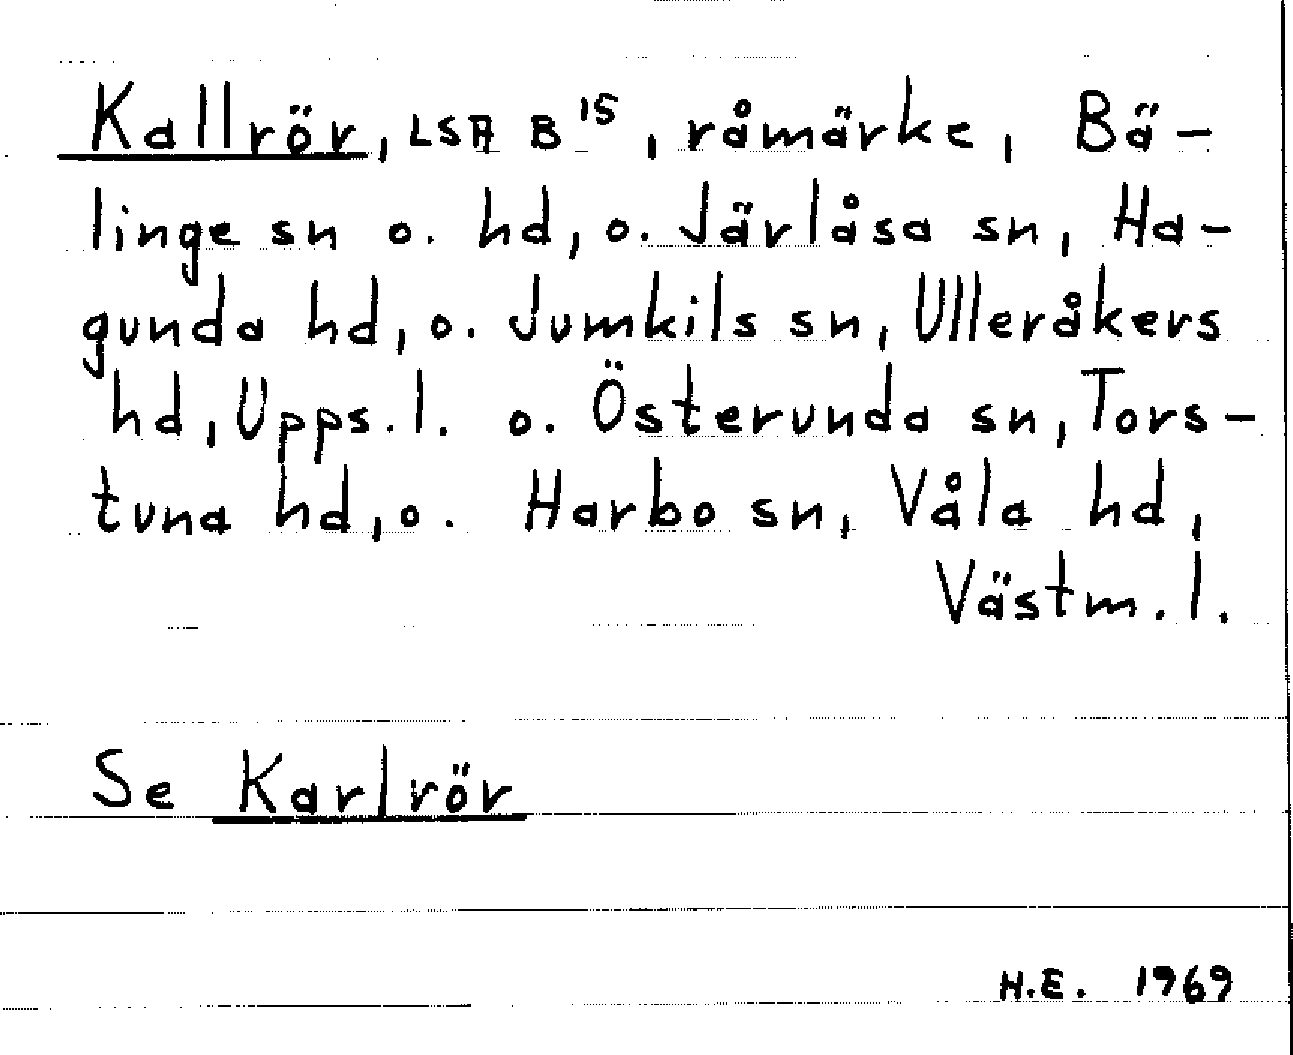 Kallrör, LSA B 15, råmärke, Bä-
linge sn o. hd, o. Järlåsa sn, Ha-
gunda hd, o. Jumkils sn, Ulleråkers
hd, Upps. l. o. Österunda sn, Tors-
tuna hd, o. Harbo sn, Våla hd,
Västm. l.
Se Karlrör
H.E. 1969